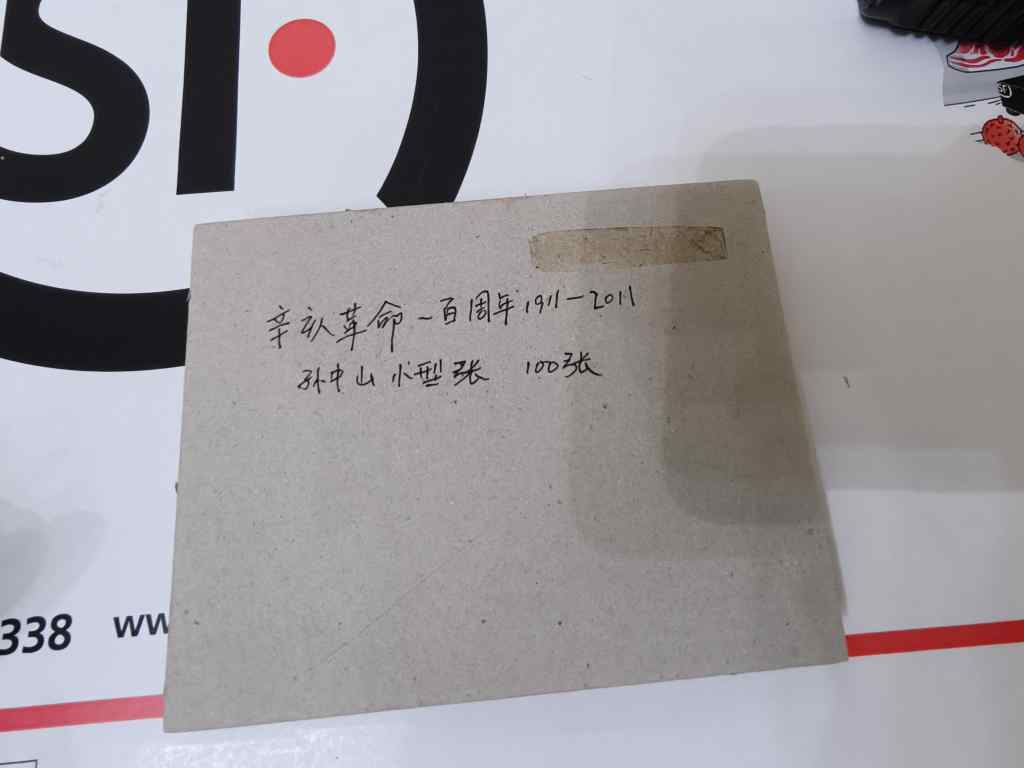 SF
辛亥革命一百周年1911-2011
孙中山小型张 100张
338 ww
SF